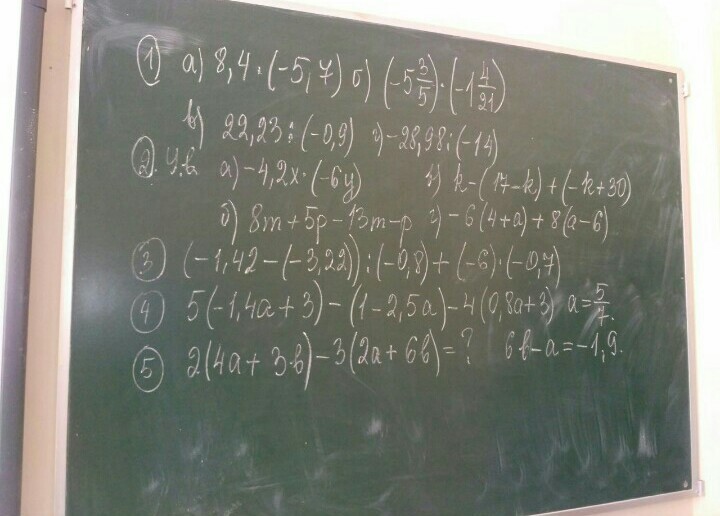 1 а) 8,4 · (-5,7) б) (-5 3/5) · (-1 4/21)
в) 22,23 : (-0,9) г) -28,98 : (-14)
2. Ув а) -4,2x · (-6y) в) k-(17-k)+(-k+30)
б) 8m+5p-13m-p г) -6(4+a)+8(a-6)
3 (-1,42-(-3,22)) : (-0,8)+(-6)·(-0,7)
4 5(-1,4a+3)-(1-2,5a)-4(0,8a+3) a=5/7.
5 2(4a+3b)-3(2a+6b)=? 6b-a=-1,9.